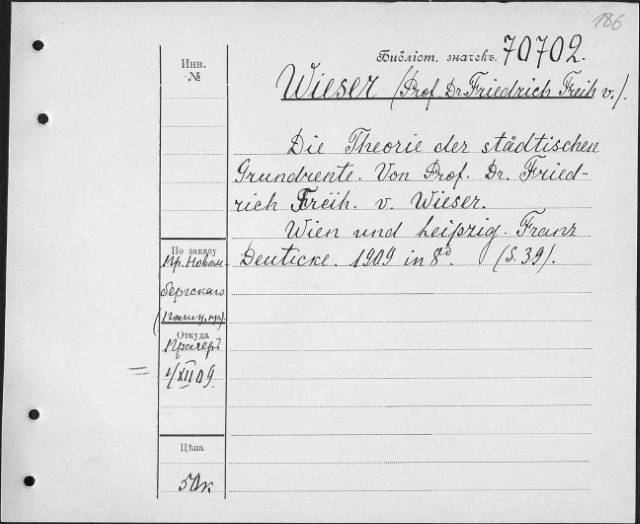 186
Библіот. значекъ 70702.
Инв.
№
Wieser (Prof. Dr. Friedrich Freih v.).
Die Theorie der städtischen
Grundrente. Von Prof. Dr. Fried-
rich Freih. v. Wieser.
Wien und Leipzig. Franz
Deuticke. 1909 in 8º. (S. 39).
По заказу
Пр. Новом-
бергскаго
Откуда
4/XII 09.
Цѣна
50к